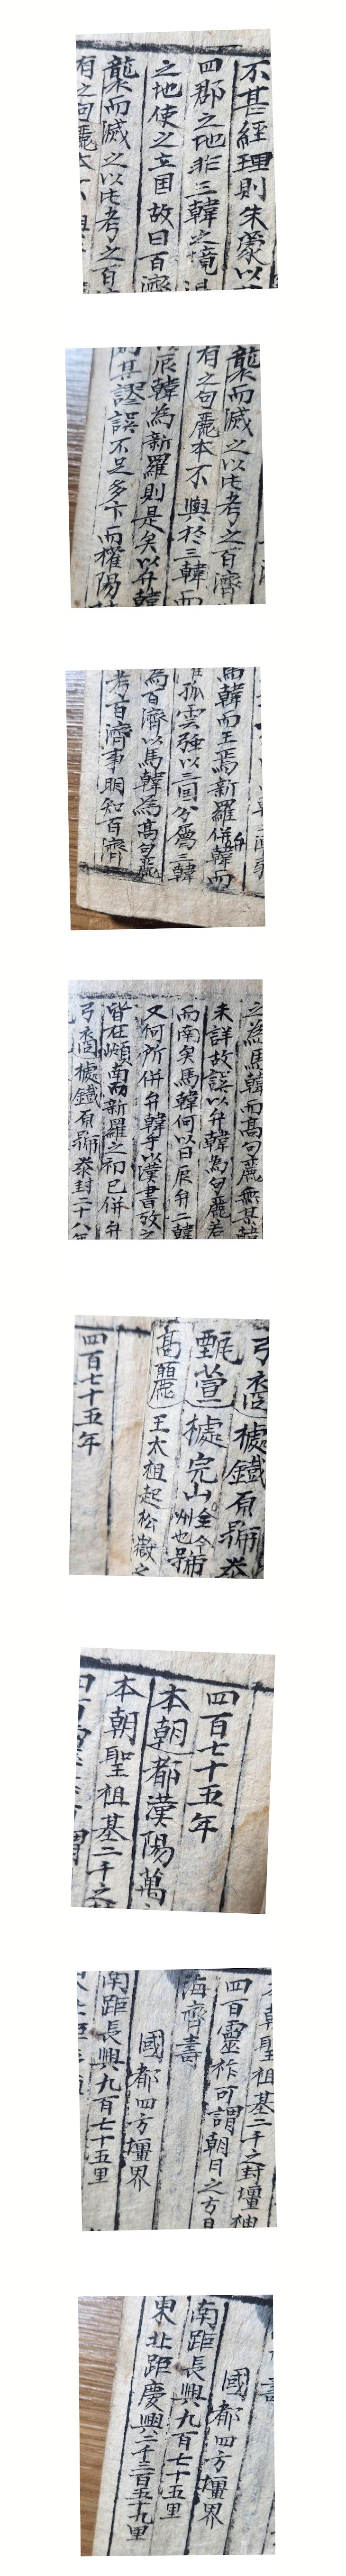 不甚經理則朱蒙以
四郡之地非三韓之境
之地使之立国故曰百濟
襲而滅之以此考之百
有之句麗本不
襲而滅之以此考之百濟
有之句麗本不興於三韓而
辰韓為新羅則是矣以弁韓
其謬誤不足多卞而權陽
馬韓而王焉新羅併弁韓而
孤雲強以三国分屬三韓
為百濟以馬韓為高句麗
考百濟事明知百濟
之為馬韓而高句麗無其韓
未詳故誤以弁韓為句麗若
而南矣馬韓何以曰辰弁二韓
又何所併弁韓乎以漢書攷之
皆在嶺南而新羅之初已併弁
弓裔據鐵原號泰封二十八年
弓裔據鐵原號泰
甄萱據完山今全州也號
高麗王太祖起松嶽之
四百七十五年
四百七十五年
本朝都漢陽萬
本朝聖祖基二千之
本朝聖祖基二千之封壃神
四百靈祚可謂朝日之方
海齊壽
國都四方壃界
南距長興九百七十五里
國都四方壃界
南距長興九百七十五里
東北距慶興二千三百五十九里